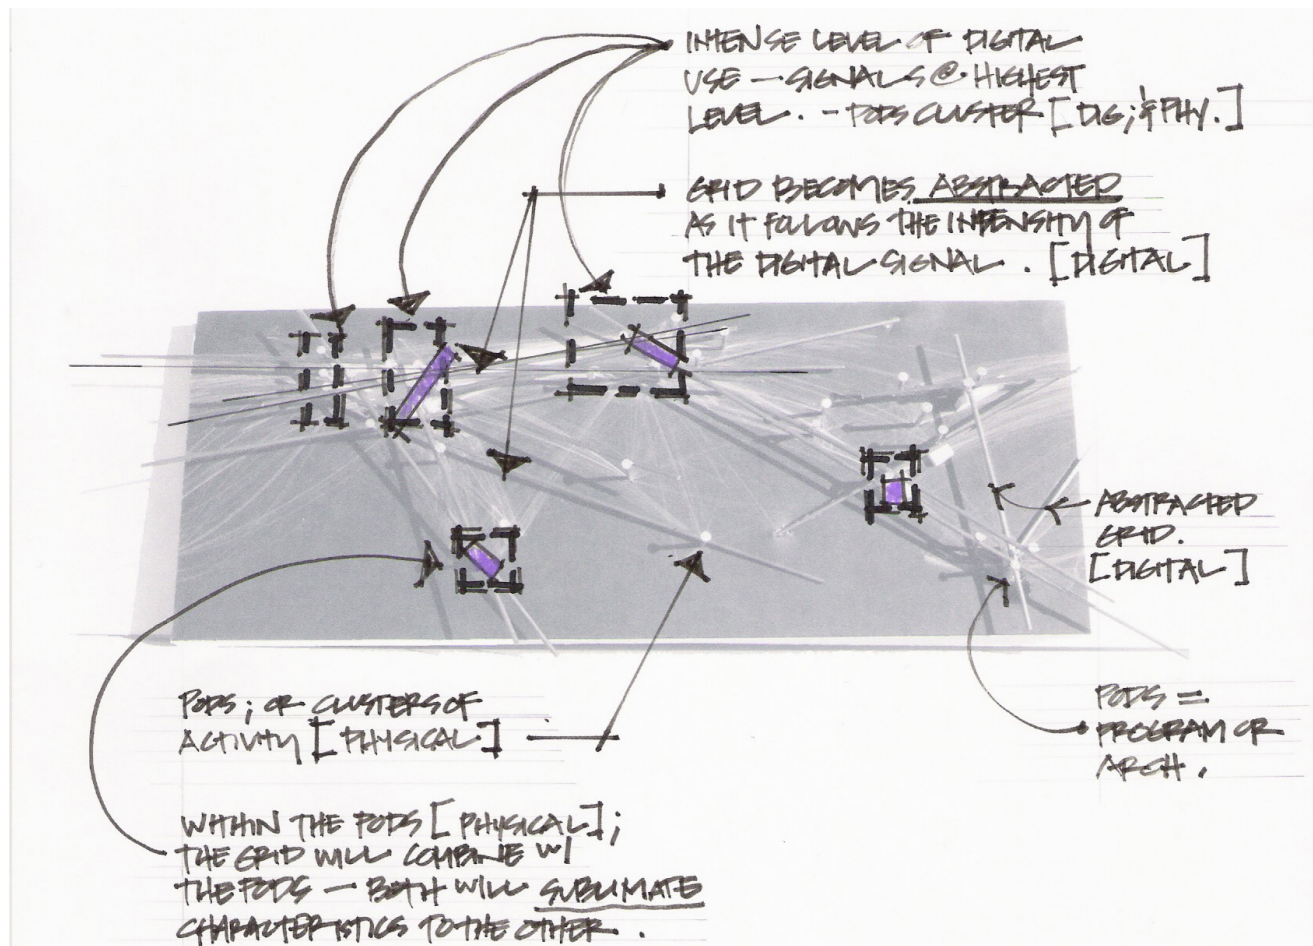 INTENSE LEVEL OF DIGITAL
USE — SIGNALS @ HIGHEST
LEVEL. - PODS CLUSTER [DIG; & PHY.]
GRID BECOMES ABSTRACTED
AS IT FOLLOWS THE INTENSITY OF
THE DIGITAL SIGNAL. [DIGITAL]
ABSTRACTED
GRID.
[DIGITAL]
PODS; OR CLUSTERS OF
ACTIVITY [PHYSICAL]
PODS =
PROGRAM OR
ARCH.
WITHIN THE PODS [PHYSICAL];
THE GRID WILL COMBINE W/
THE PODS — BOTH WILL SUBLIMATE
CHARACTERISTICS TO THE OTHER.